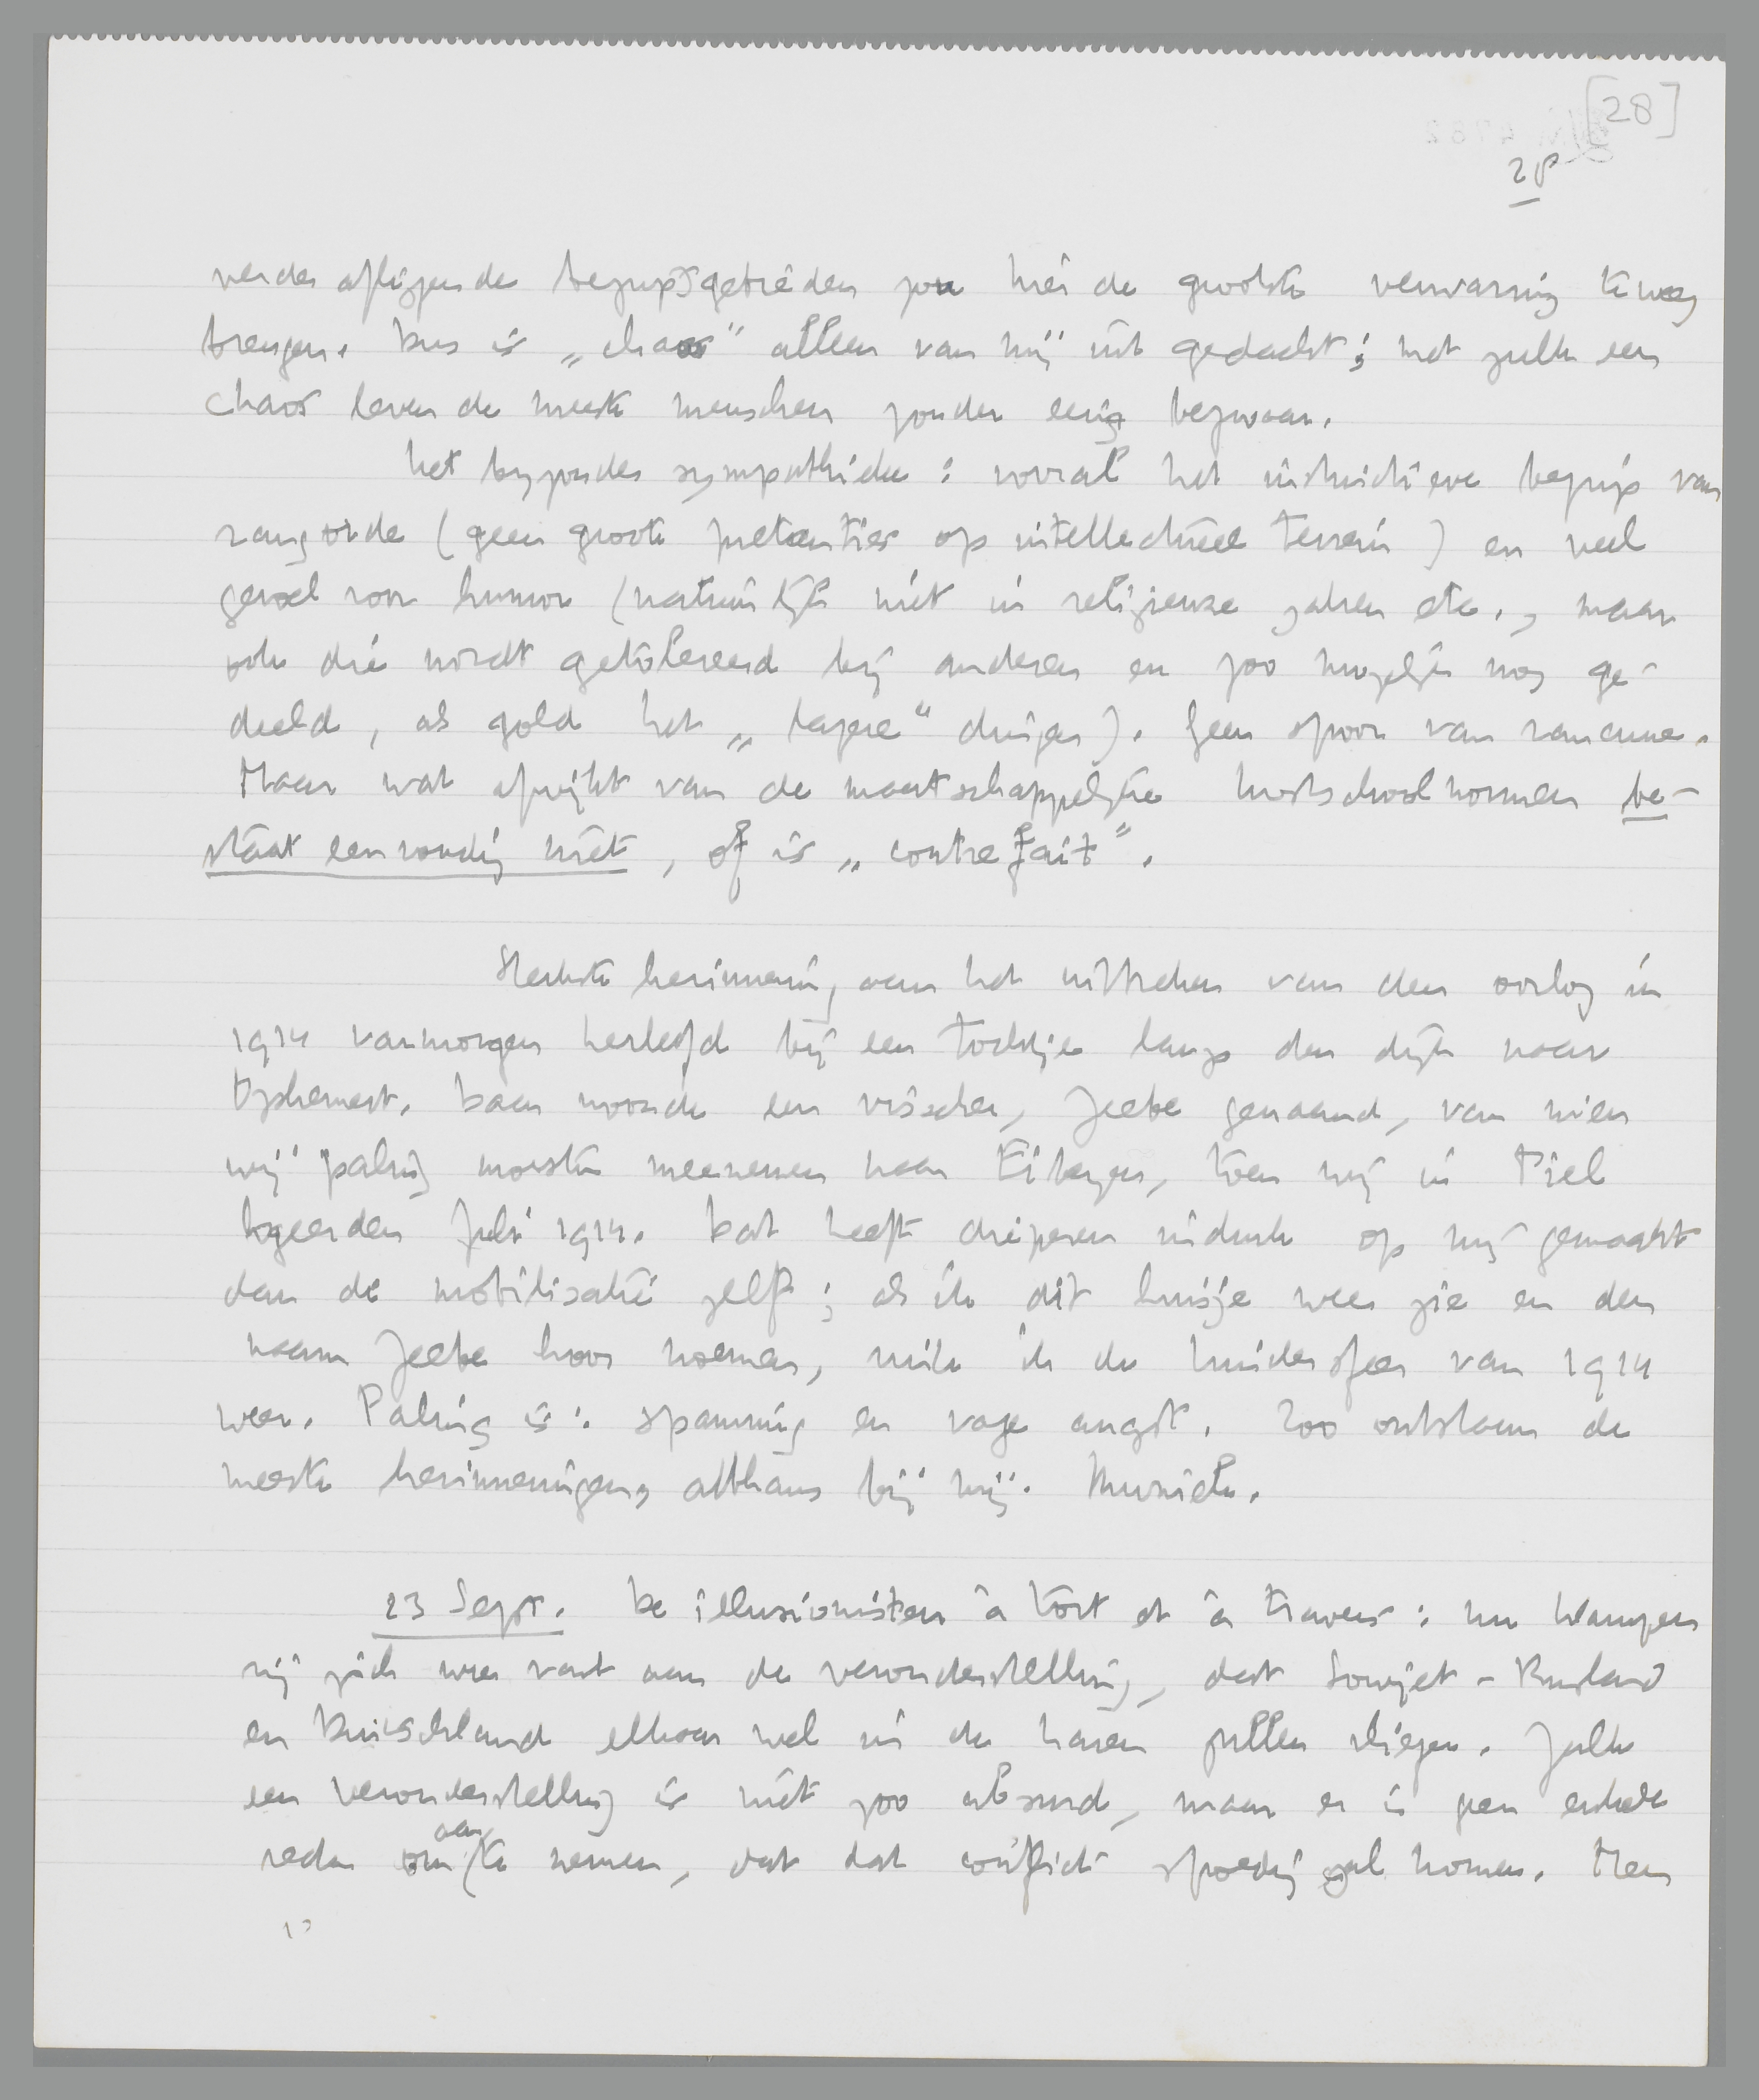 [28]
28
verder afliggende begripsgebieden zou hier de grootste verwarring teweeg
brengen. Dus is „chaos” alleen van mij uit gedacht; met zulk een
chaos leven de meeste menschen zonder eenig bezwaar.
Het bijzonder sympathieke: vooral het instinctieve begrip van
rangorde (geen groote pretenties op intellectueel terrein) en veel
gevoel voor humor (natuurlijk niet in religieuze zaken etc., maar
ook die wordt getolereerd bij anderen en zoo mogelijk nog ge-
deeld, als gold het „lagere” dingen). Geen spoor van rancune.
Maar wat afwijkt van de maatschappelijke kostschoolnormen be-
staat eenvoudig niet, of is „contrefait”.
Sterkste herinnering aan het uitbreken van den oorlog in
1914 vanmorgen herleefd bij een tochtje langs den dijk naar
Ophemert. Daar woonde een visscher, Jeebe genaamd, van wien
wij paling moesten meenemen naar Eibergen, toen wij in Tiel
logeerden Juli 1914. Dat heeft dieperen indruk op mij gemaakt
dan de mobilisatie zelf; als ik dit huisje weer zie en den
naam Jeebe hoor noemen, ruik ik de kindersfeer van 1914
weer. Paling is: spanning en vage angst. Zoo ontstaan de
meeste herinneringen, althans bij mij. Muziek.
23 Sept. De illusionisten à tort et à travers: nu klampen
zij zich weer vast aan de veronderstelling, dat Sowjet-Rusland
en Duitschland elkaar wel in de haren zullen vliegen. Zulk
een veronderstelling is niet zoo absurd, maar er is geen enkele
reden om aan te nemen, dat dat conflict spoedig zal komen. Men